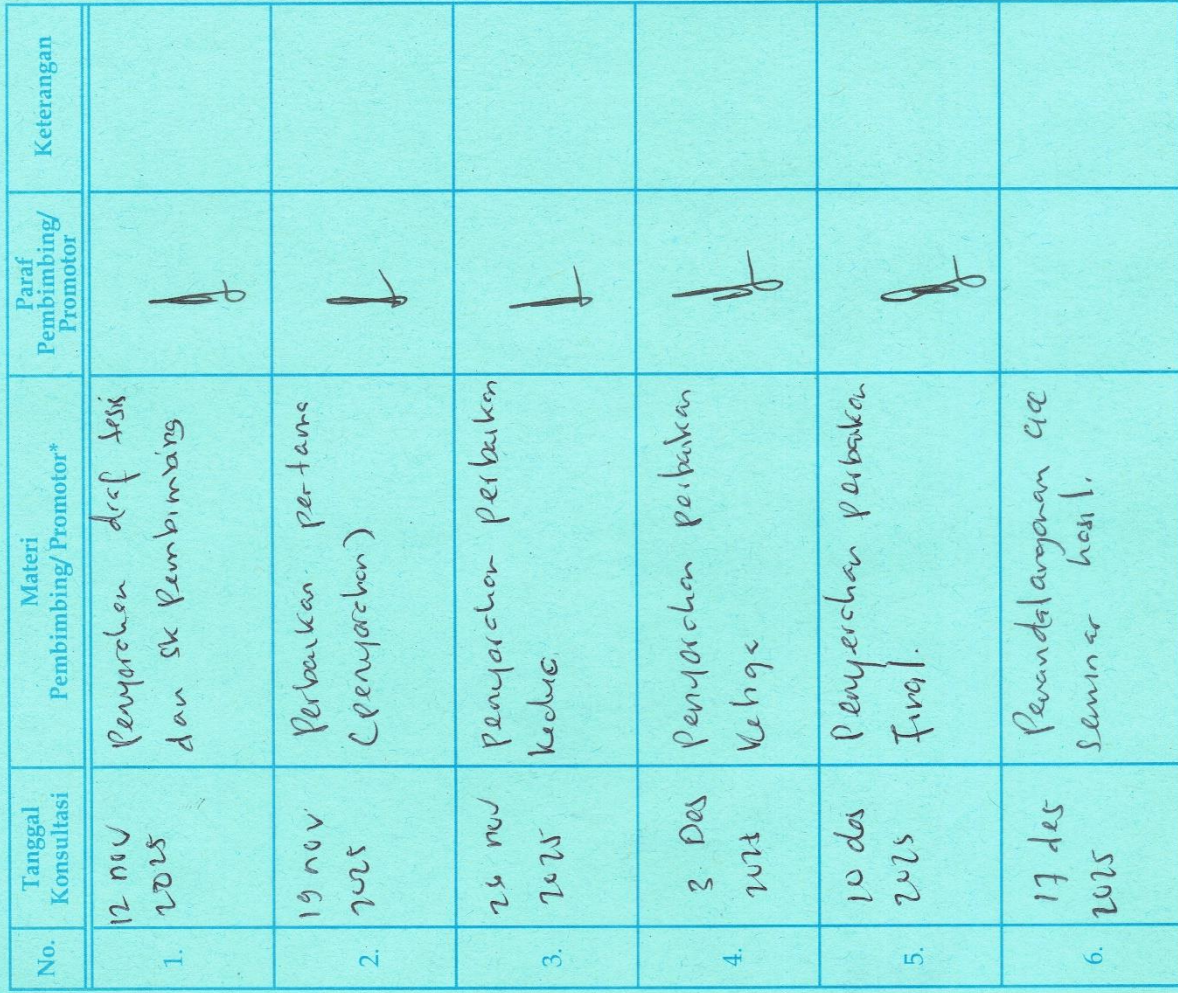 No.
Tanggal
Konsultasi
Materi
Pembimbing/ Promotor*
Paraf
Pembimbing/
Promotor
Keterangan
1.
12 nov
2025
Penyerahan draf tesis
dan SK Pembimbing
2.
19 nov
2025
Perbaikan pertama
(penyerahan)
3.
26 nov
2025
Penyerahan perbaikan
kedua
4.
3 Des
2025
Penyerahan perbaikan
ketiga
5.
10 des
2025
Penyerahan perbaikan
Final.
6.
17 des
2025
Penandatanganan acc
seminar hasil.